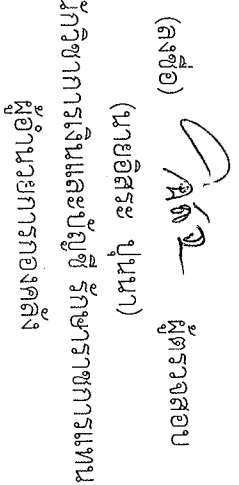 (ลงชื่อ) ผู้ตรวจสอบ
(นายอิสระ ปุนนา)
นักวิชาการเงินและบัญชี รักษาราชการแทน
ผู้อำนวยการกองคลัง